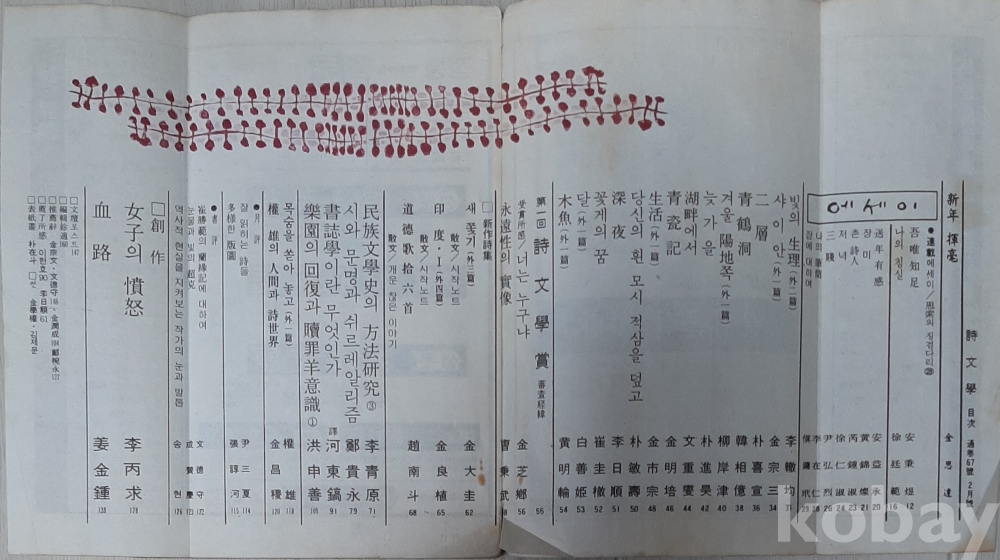 詩文學 目次 通巻67號 2月號
新年 揮毫 金思達
에세이
●連載에세이/思索의 징검다리㉘
吾唯知足 安秉煜 12
나의 침실 徐廷範 16
送年有感 安益承 20
장미 黃燦 21
촌 詩人 芮鍾淑 23
저녁 徐仁淑 24
三賤 尹弘烈 26
나의 筆俗 李在仁 28
빛의 生理(外二篇) 李轍均 31
샤이안(外一篇) 金東三 34
二層 朴喜宣 36
靑鶴洞 韓相億 38
겨울 陽地쪽(外一篇) 柳岸津 40
늦가을 朴進旻 42
湖畔에서 文重燮 44
靑瓷記 金明培 45
生活(外一篇) 金市宗 48
당신의 흰 모시 적삼을 덮고 朴敏壽 50
深夜 李日順 51
꽃게의 꿈 崔圭徹 52
달(外一篇) 白姬 53
木魚(外一篇) 黃明輪 54
第一回 詩文學賞 審査経緯 55
受賞所感/너는 누구냐 金芝鄕 56
永遠性의 實像 曺秉武 58
□新作詩集
새 꽃기(外三篇) 金大圭 62
散文/시작노트
印度·Ⅰ(外四篇) 金良植 65
散文/시작노트
道德歌拾六首 趙南斗 68
散文/개운찮은 이야기
民族文學史의 方法研究③ 李靑原 71
시와 문명과 쉬르레알리즘 鄭貴永 79
書誌學이란 무엇인가 譯 河東鎬 91
樂園의 回復과 贖罪羊意識① 洪申善 109
목숨을 쫓아 놓고(外一篇) 權雄 118
權雄의 人間과 詩世界 金昌稷 120
●月評
잘 읽히는 詩들 尹三夏 114
多樣한 版圖 張諄河 115
●書評
崔勝範의 蘭緣記에 대하여 文德守 122
눈물과 빛의 超克 成贊慶 123
역사적 현실을 지켜보는 작가의 눈과 발톱 宋明 126
□創作
女子의 憤怒 李丙求 128
血路 姜金鍾 138
□文壇포스트 147
□編輯餘適 160
□推薦辭 金宗文·文德守 118·金潤成 104 鄭梡永 177
□薦了所感 이한호 90 李日順 61
□表紙畫 朴在斗·□컷 金學權·김제문
kobay